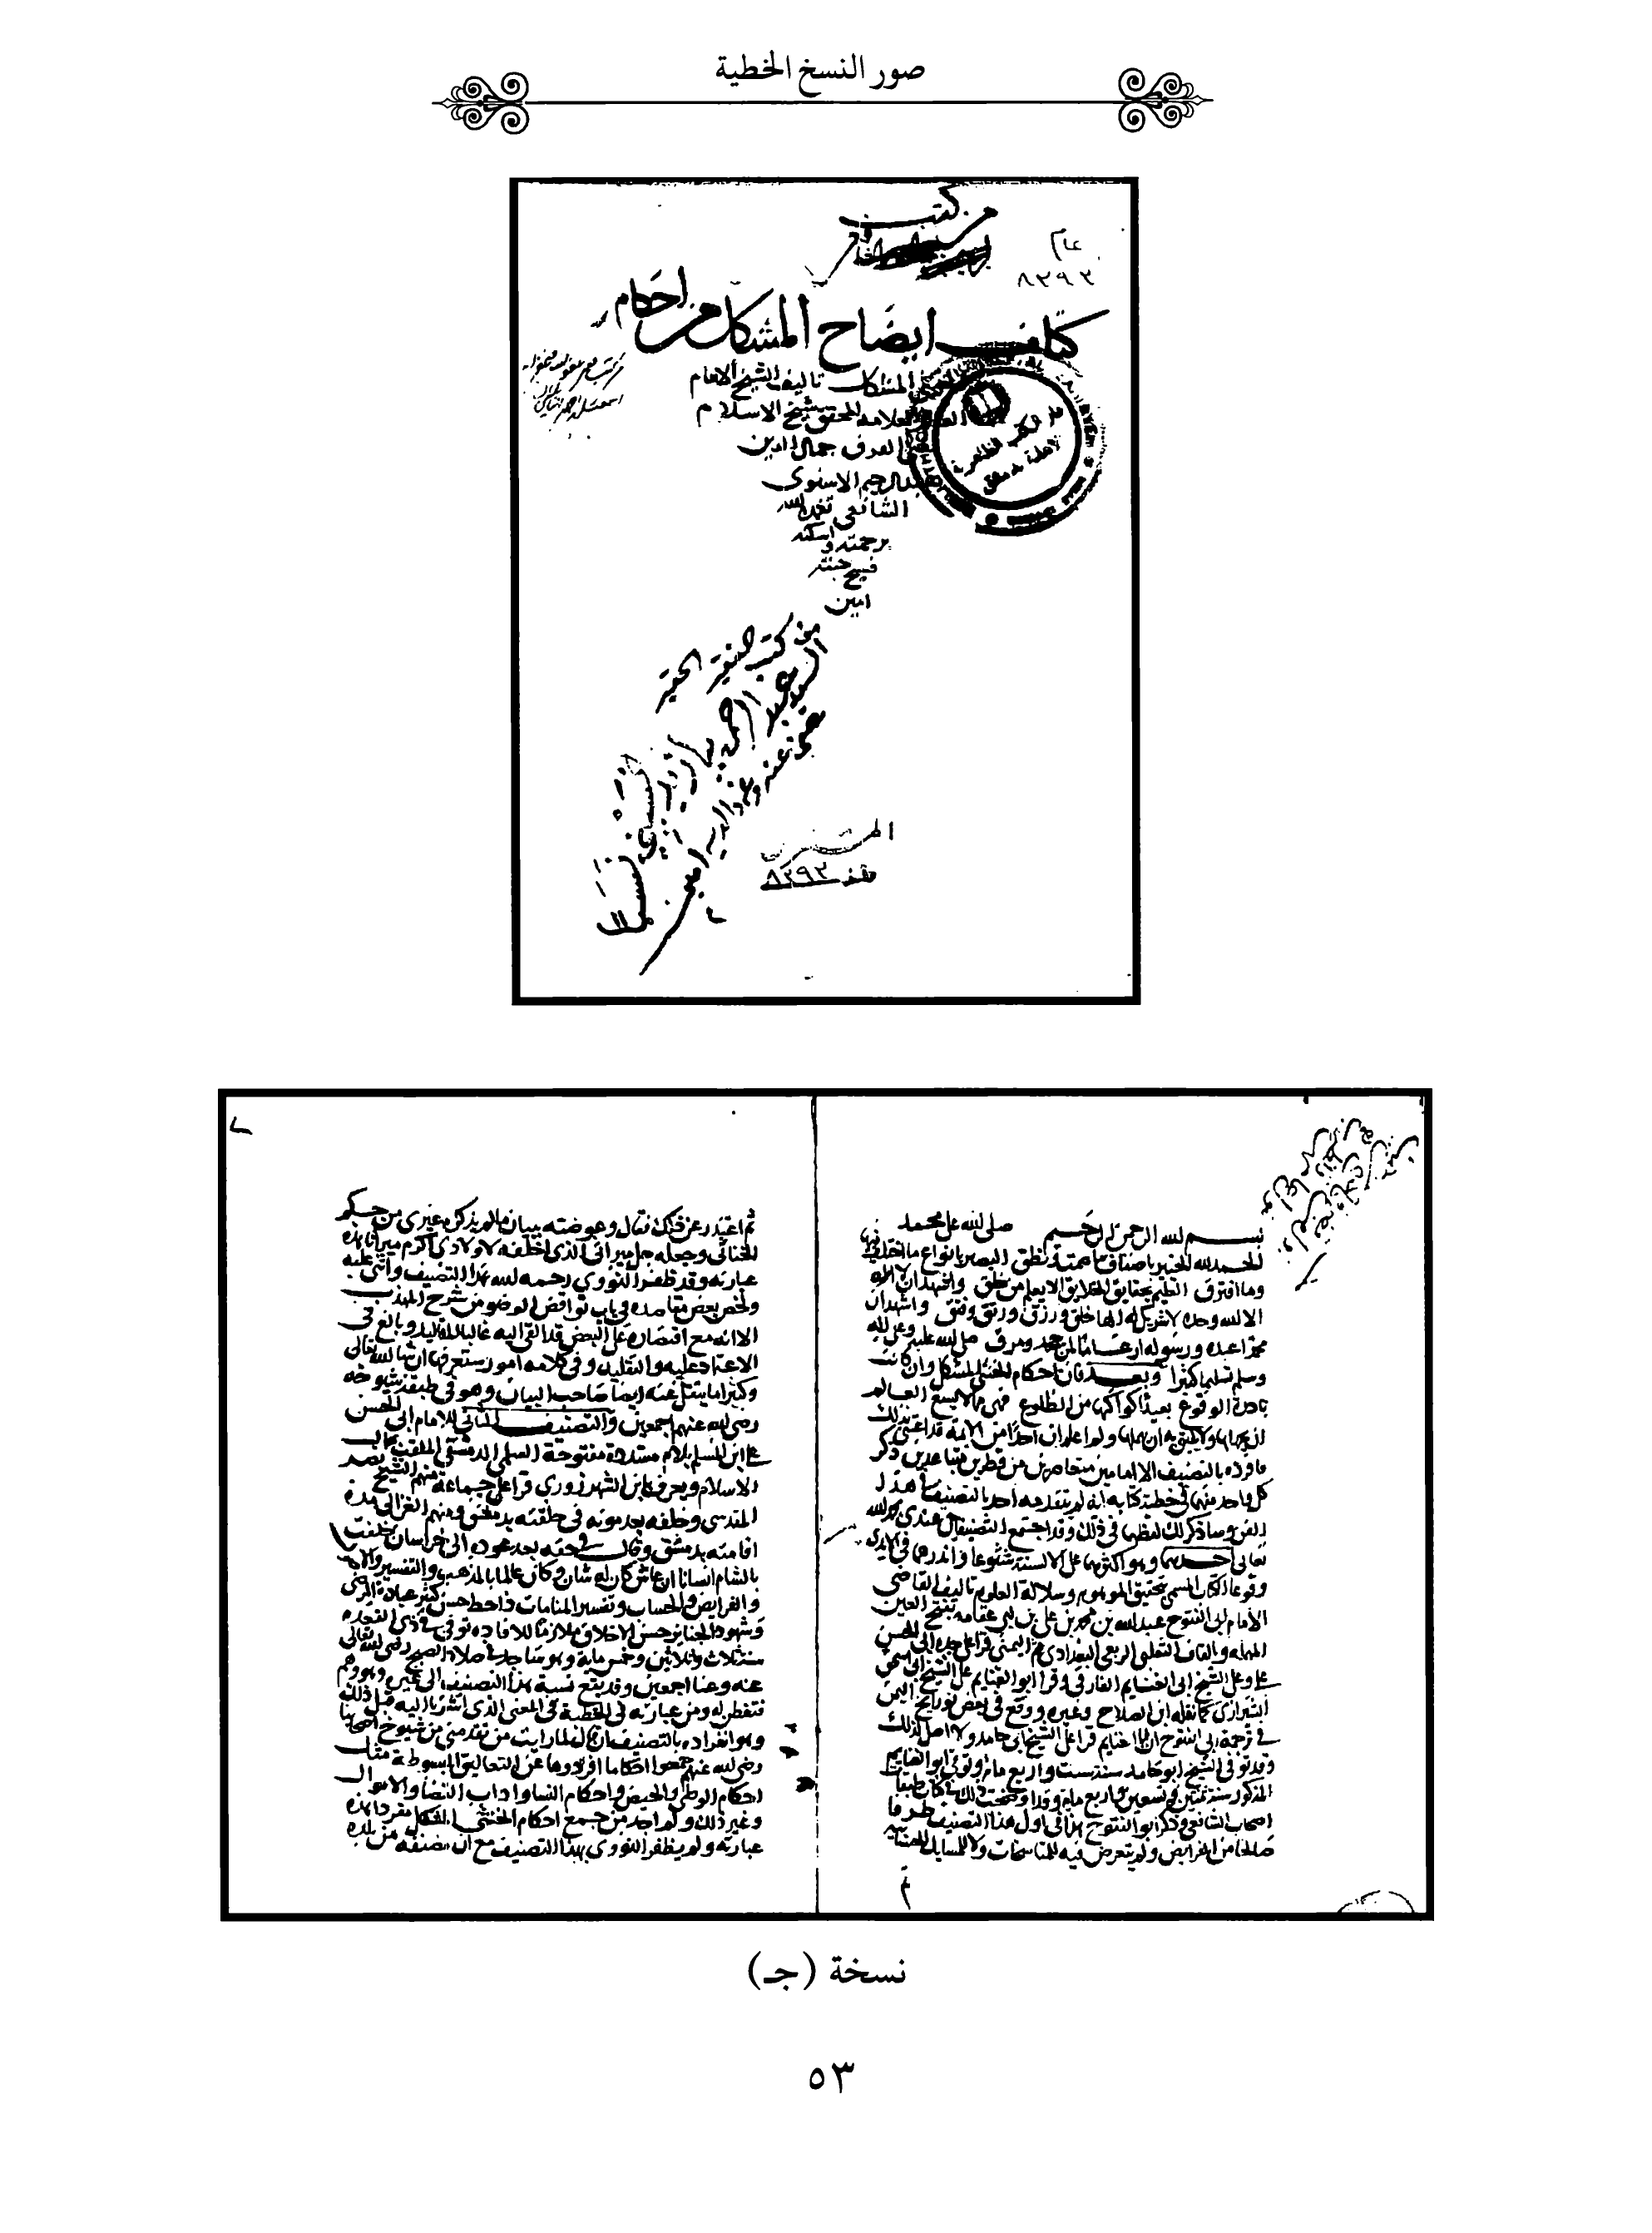 صور النسخ الخطية
من كتب
عام
٨٣٩٣
كتاب ايضاح المشكل من احكام
المشكل تاليف الشيخ الامام
العلامه المحقق شيخ الاسلام
جمال الدين
عبدالرحيم الاسنوى
الشافعى تغمده الله
برحمته و اسكنه
فسيح جنته
امين
من كتب الفقير الحقير
السيد عبد الرحمن
عفى عنه
٨٣٩٣
بسم الله الرحمن الرحيم صلى الله على محمد
الحمد لله الخبير باصناف ما صمت ونطق البصير بانواع ما اختلف
وما افترق العليم بحقايق الخلايق الا يعلم من خلق واشهد ان لا اله
الا الله وحده لا شريك له الها خلق ورزق ورتق وفتق واشهد ان
محمدا عبده ورسوله ارغاما لمن جحد ومرق صلى الله عليه وعلى اله
وسلم تسليما كثيرا وبعد فان احكام الخنثى المشكل وان كانت
نادرة الوقوع بعيدا كواكبها من الطلوع فهى مما لا يسع العالم
ان يجهلها ولا يليق به ان يهملها ولم اعلم ان احدا من الائمة قد اعتنى بذلك
فافرده بالتصنيف الا امامين متعاصرين من قطرين متباعدين ذكر
كل واحد منهما فى خطبة كتابه انه لم يتقدمه احد بالتصنيف فى هذا
الفن وساذكر لك لفظهما فى ذلك وقد اجتمع التصنيفان عندى بحمد الله
تعالى احدهما وهو اكثرهما على الالسنة شيوعا واندرهما فى الايدى
وقوعا الكتاب المسمى بتحقيق الموهوم وسلالة العلوم تاليف القاضى
الامام ابى الفتوح عبد الله بن محمد بن على بن ابى عقامه بفتح العين
المهمله والقاف التغلبى الربعى البغدادى ثم اليمنى قرا على جده ابى الحسن
على وعلى الشيخ ابى الغنايم الفارقى وقرا ابو الغنايم على الشيخ ابى اسحق
الشيرازى كما نقله ابن الصلاح وغيره ووقع فى بعض تواريخ اليمن
فى ترجمة ابى الفتوح ان ابا الغنايم قرا على الشيخ ابى حامد ولا اصل لذلك
وقد توفى الشيخ ابو حامد سنة ست واربع مايه وتوفى ابو الغنايم
المذكور سنة ثنتين وتسعين واربع مايه وقد اوضحت ذلك فى كتاب طبقات
اصحاب الشافعى وذكر ابو الفتوح هذا فى اول هذا التصنيف طرفا
صالحا من الفرايض ولم يتعرض فيه للمناسخات ولا للمسايل الحسابيه
ثم
ثم اعتذر عن ذلك فقال وعوضته ببيان ما لم يذكره غيرى من حكم
الخناثى وجعله جل ميراثى الذى اخلفه لاولادى اكرم ميراثا هذه
عبارته وقد ظفر النووى رحمه الله بهذا التصنيف واثنى عليه
ولخص بعض مقاصده فى باب نواقض الوضو من شرح المهذب
الا انه مع اقتصاره على البعض قد القى اليه غالبا المقاليد وبالغ فى
الاعتماد عليه والتقليد وفى كلامه امور ستعرفها ان شا الله تعالى
وكثيرا ما ينقل عنه ايضا صاحب البيان وهو فى طبقة شيوخه
رضى الله عنهم اجمعين والتصنيف الثانى للامام ابى الحسن
على ابن المسلم بلام مشددة مفتوحة السلمى الدمشقى الملقب بجمال
الاسلام ويعرف بابن الشهرزورى قرا على جماعة منهم الشيخ نصر
المقدسى وخلفه بعد موته فى حلقته بدمشق ومنهم الغزالى مدة
اقامته بدمشق وقال فى حقه بعد عوده الى خراسان خلفت
بالشام انسانا ان عاش كان له شان وكان عالما بالمذهب والتفسير والاصول
والفرايض والحساب وتفسير المنامات ذا حظ حسن كثير عيادة المرضى
وشهود الجنايز حسن الاخلاق ملازما للافاده توفى فى ذى القعده
سنة ثلاث وثلاثين وخمس مايه وهو ساجد فى صلاة الصبح رضى الله تعالى
عنه وعنا اجمعين وقد يقع نسبة هذا التصنيف الى غيره وهو وهم
فتفطن له ومن عبارته فى الخطبة فى المعنى الذى اشرنا اليه قبل ذلك
وهو انفراده بالتصنيف ان قال لما رايت من تقدمنى من شيوخ اصحابنا
رضى الله عنهم جمعوا احكاما افردوها عن التعاليق المبسوطة مثل
احكام الوطى والحيض واحكام النسا واداب القضا والاموال
وغير ذلك ولم اجد من جمع احكام الخنثى المشكل مفردا هذه
عبارته ولم يظفر النووى بهذا التصنيف مع ان مصنفه من بلده
نسخة (جـ)
٥٣